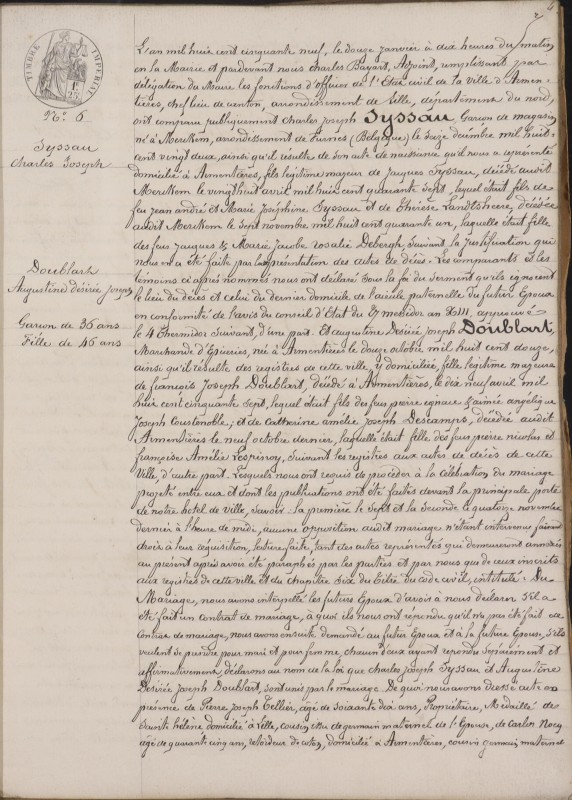 4
TIMBRE IMPERIAL
N.° 6
Tyssau
Charles Joseph
Doublart
Augustine désiré Joseph
Garçon de 36 ans
Fille de 46 ans
L'an mil huit cent cinquante neuf, le douze janvier à dix heures du matin
en la Mairie et pardevant nous Charles Bayart, Adjoint, remplissant par
délégation du Maire les fonctions d'officier de l'Etat civil de la ville d'Armen-
tières, chef lieu de canton, arrondissement de Lille, département du nord,
ont comparu publiquement Charles Joseph Tyssau, Garçon de magasin
né à Merckem, arrondissement de Furnes (Belgique) le douze décembre mil huit-
cent vingt deux, ainsi qu'il résulte de son acte de naissance qu'il nous a représenté
domicilié à Armentières, fils légitime majeur de Jacques Tyssau, décédé audit
Merckem le vingt huit avril mil huit cent quarante sept, lequel était fils de
feu Jean andré et Marie Joséphine Tyssau et de Thérèse Landtsheere, décédée
audit Merckem le sept novembre mil huit cent quarante un, laquelle était fille
des feu Jacques & Marie Jacobe rosalie Debergh suivant la justification qui
nous en a été faite par la représentation des actes de décès. Les comparants et les
témoins ci après nommés nous ont déclaré sous la foi du serment qu'ils ignorent
le lieu du décès et celui du dernier domicile de l'aieule paternelle du futur Epoux
en conformité de l'avis du conseil d'Etat du 27 messidor an XIII, approuvé
le 4 Thermidor suivant, d'une part. Et augustine Désirée Joseph Doublart,
Marchande d'Epiceries, née à Armentières le douze octobre mil huit cent douze,
ainsi qu'il résulte des registres de cette ville, y domiciliée, fille légitime majeure
de françois Joseph Doublart, décédé à Armentières, le dix neuf avril mil
huit cent cinquante sept, lequel était fils des feu pierre ignace & aimée angélique
Joseph Coustenoble; et de Catherine amélie Joseph Descamps, décédée audit
Armentières le neuf octobre dernier, laquelle était fille des feu pierre nicolas et
françoise Amélie Lespinoy, suivant les registres aux actes de décès de cette
Ville, d'autre part. Lesquels nous ont requis de procéder à la célébration du mariage
projeté entre eux et dont les publications ont été faites devant la principale porte
de notre hôtel de Ville, savoir: la première le sept et la seconde le quatorze novembre
dernier à l'heure de midi, aucune opposition audit mariage n'étant intervenue faisant
droit à leur réquisition, lecture faite, tant des actes représentés qui demeureront annexés
au présent après avoir été paraphés par les parties et par nous que de ceux inscrits
aux registres de cette ville et du chapitre six du titre du code civil, intitulé: Du
Mariage, nous avons interpellé les futurs Epoux d'avoir à nous déclarer s'il a
été fait un contrat de mariage, à quoi ils nous ont répondu qu'il n'a pas été fait de
Contrat de mariage, nous avons ensuite demandé au futur Epoux et à la future Epouse, s'ils
veulent se prendre pour mari et pour femme, chacun d'eux ayant répondu séparément et
affirmativement, déclarons au nom de la loi que Charles Joseph Tyssau et Augustine
Désirée Joseph Doublart, sont unis par le mariage. De quoi nous avons dressé acte en
présence de Pierre Joseph Tellier, âgé de soixante dix ans, Propriétaire, Médaillé de
Sainte hélène domicilié à Lille, cousin issu de germain maternel de l'Epouse, de Carlos Nocq
âgé de quarante cinq ans, retordeur de coton, domicilié à Armentières, cousin germain maternel